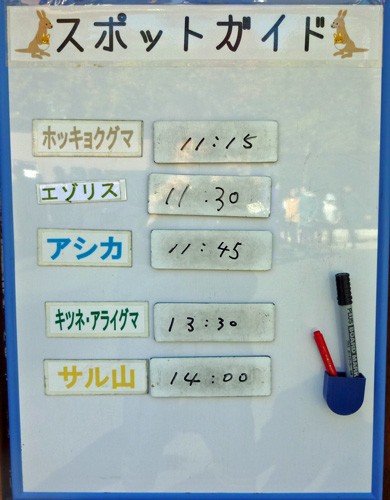 スポットガイド
ホッキョクグマ 11:15
エゾリス 11.30
アシカ 11:45
キツネ・アライグマ 13:30
サル山 14:00